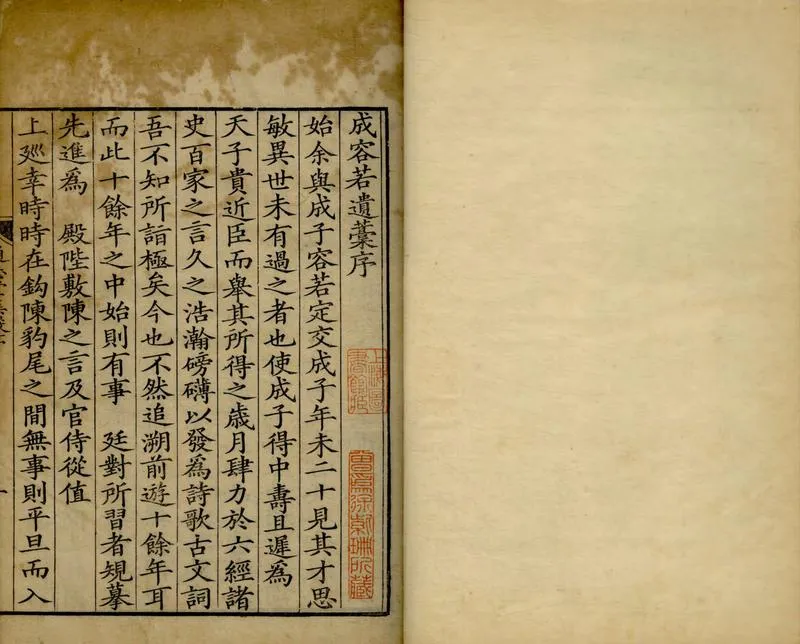 成容若遺藁序
始余與成子容若定交成子年未二十見其才思
敏異世未有過之者也使成子得中壽且遲爲
天子貴近臣而舉其所得之歲月肆力於六經諸
史百家之言久之浩瀚磅礴以發爲詩歌古文詞
吾不知所詣極矣今也不然追溯前遊十餘年耳
而此十餘年之中始則有事 廷對所習者規摹
先進爲 殿陛敷陳之言及官侍從值
上廵幸時時在鈎陳豹尾之間無事則平旦而入
上海圖書館藏
曾爲徐紫珊所藏